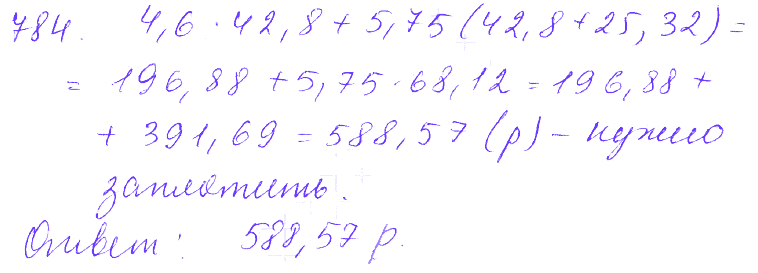 784. 4,6 · 42,8 + 5,75 (42,8 + 25,32) =
= 196,88 + 5,75 · 68,12 = 196,88 +
+ 391,69 = 588,57 (р) – нужно
заплатить.
Ответ: 588,57 р.